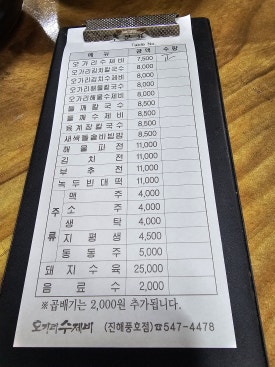 Table No.
메 뉴 금 액 수 량
오가리수제비 7,500
오가리김치칼국수 8,000
오가리김치수제비 8,000
오가리해물칼국수 8,500
오가리해물수제비 8,500
들깨칼국수 8,500
들깨수제비 8,500
육계장칼국수 8,500
새싹돌솥비빔밥 8,500
해물파전 11,000
김치전 11,000
부추전 11,000
녹두빈대떡 11,000
주류
맥주 4,000
소주 4,000
생탁 4,000
지평생 4,500
동동주 5,000
돼지수육 25,000
음료수 2,000
※곱배기는 2,000원 추가됩니다.
오가리수제비 (진해풍호점)☎547-4478